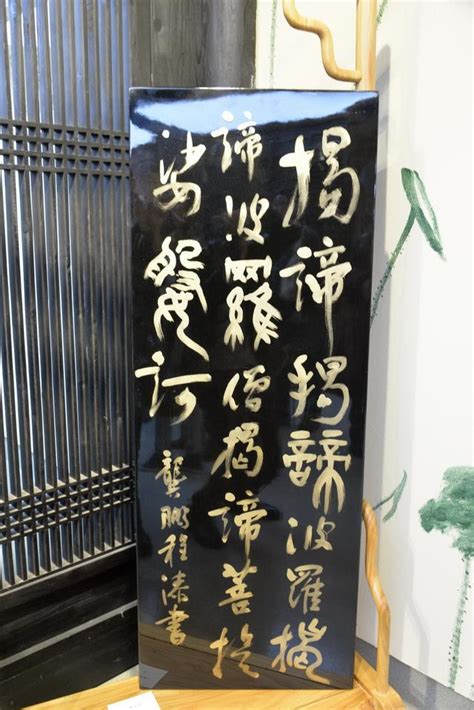 揭諦揭諦波羅揭
諦波羅僧揭諦菩提
娑婆訶
龔鵬程漆書